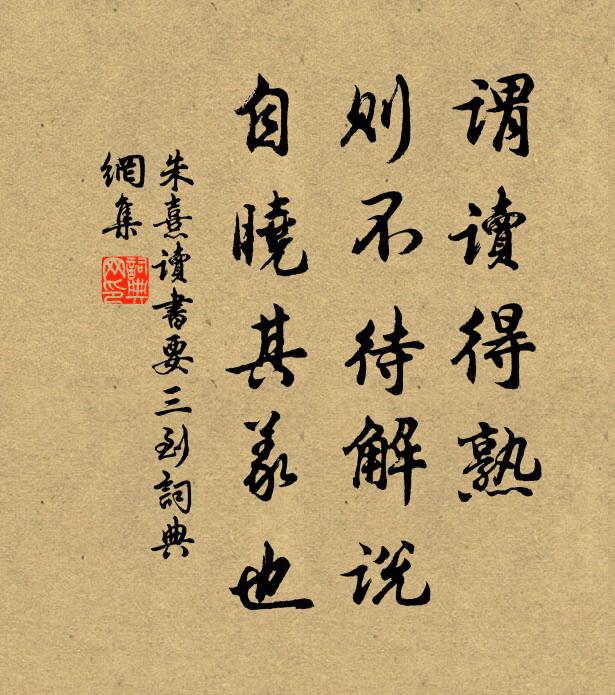 谓读得熟
则不待解说
自晓其义也
朱熹读书要三到词典
网集
词典网印